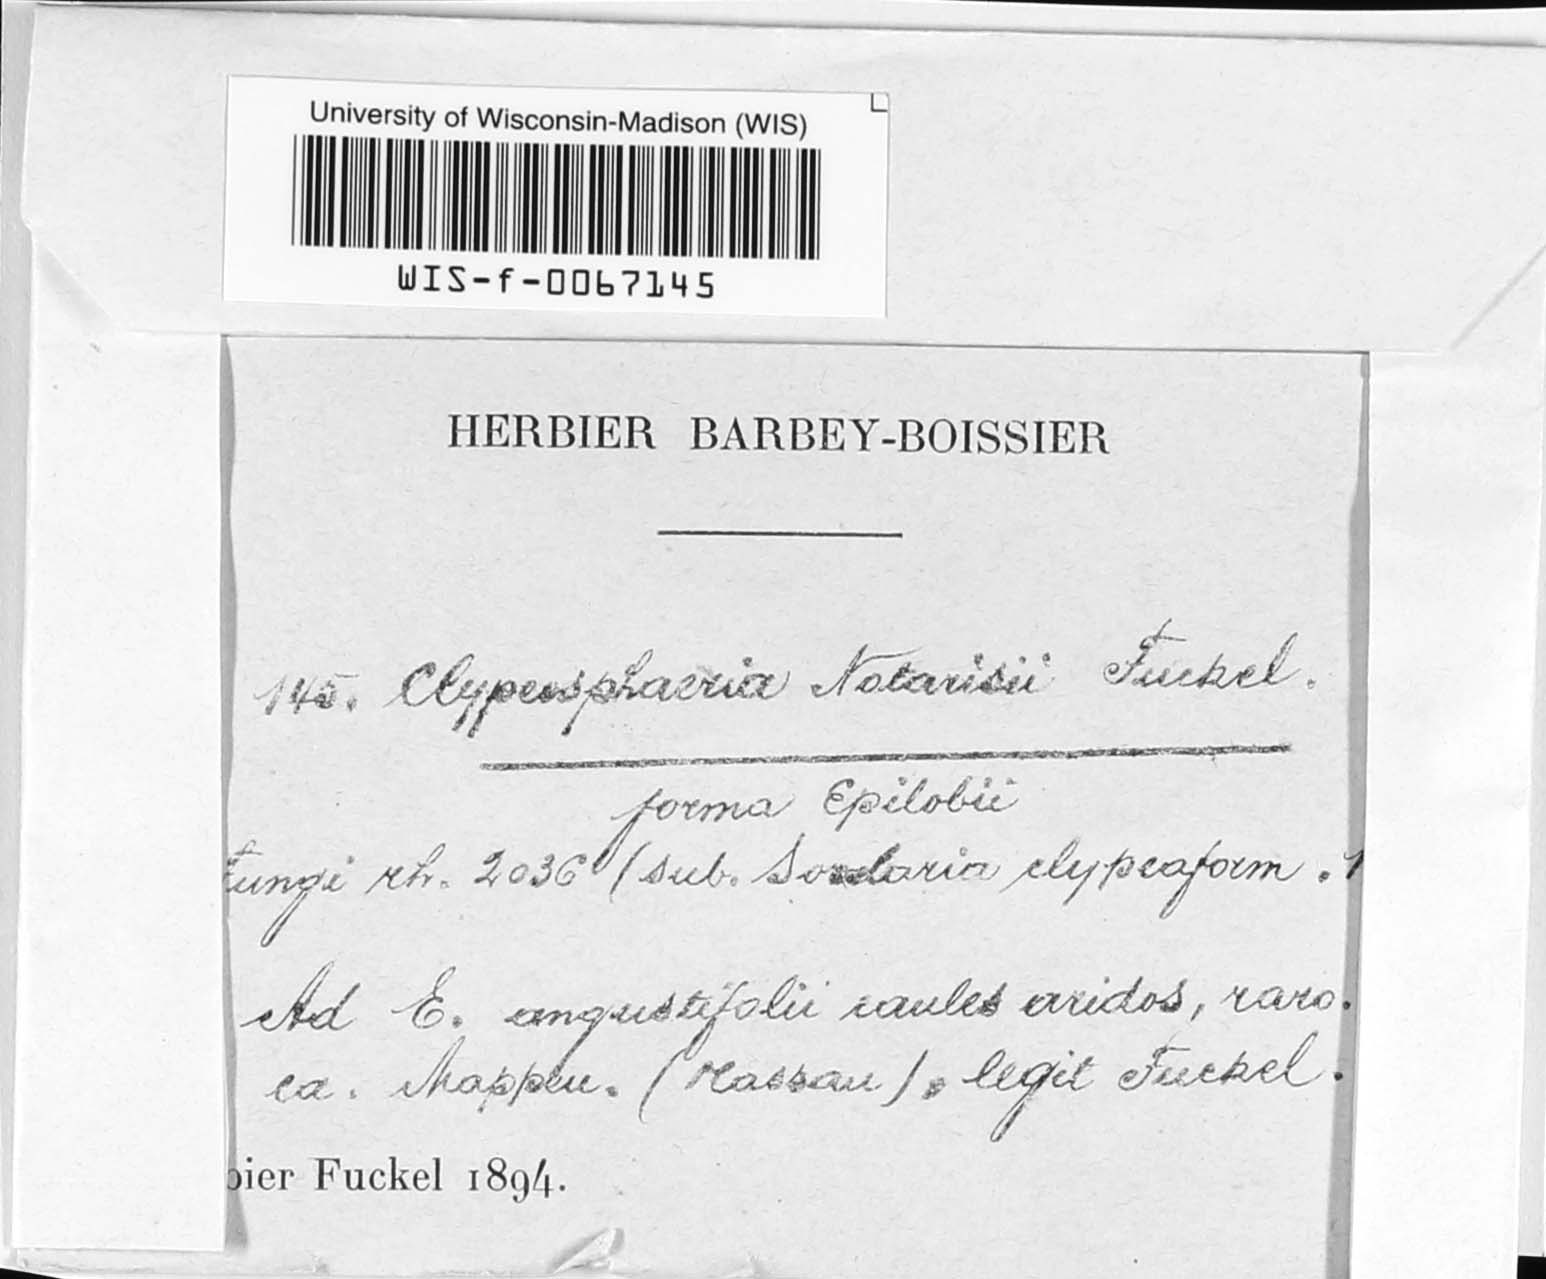 University of Wisconsin-Madison (WIS)
WIS-f-0067145
HERBIER BARBEY-BOISSIER
145. Clypeosphaeria Notarisii Fuckel.
forma Epilobii
Fungi rh. 2036 (sub. Sordaria clypeaform.
Ad E. angustifolii caules aridos, raro.
ca. Mappen. (Nassau), legit Fuckel.
bier Fuckel 1894.